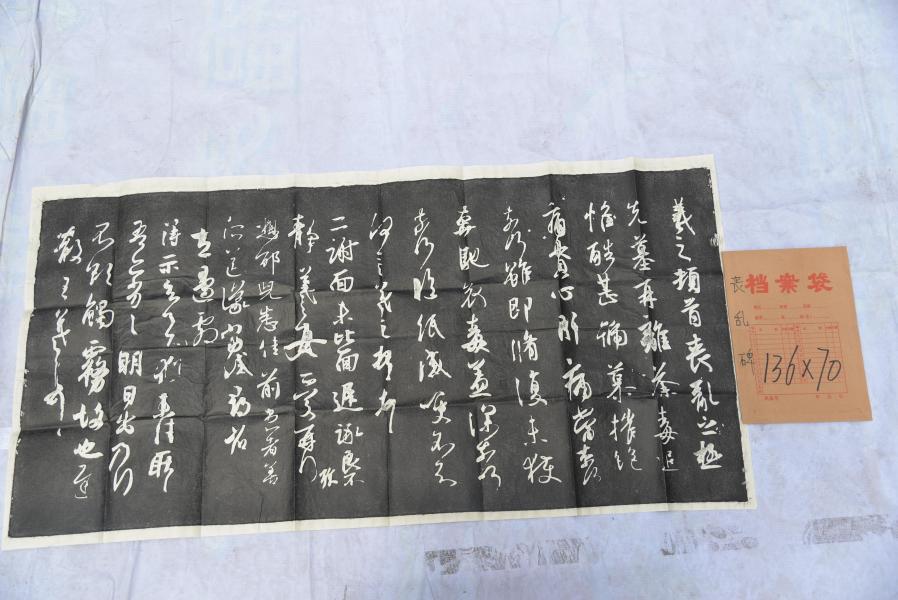 羲之頓首喪亂之極
先墓再離荼毒追
惟酷甚號慕摧絕
痛貫心肝痛當奈何
奈何雖即脩復未獲
奔馳哀毒益深奈何
奈何臨紙感哽不知
何言羲之頓首頓首
二謝面未比面遲詠良不
靜羲女愛再拜
想邵兒悉佳前患者善
所送議當試尋省
左邊劇
得示知足下猶未佳耿
吾亦劣劣明日出乃行
不欲觸霧故也遲
散王羲之頓首
档案袋
丧乱碑
136×70